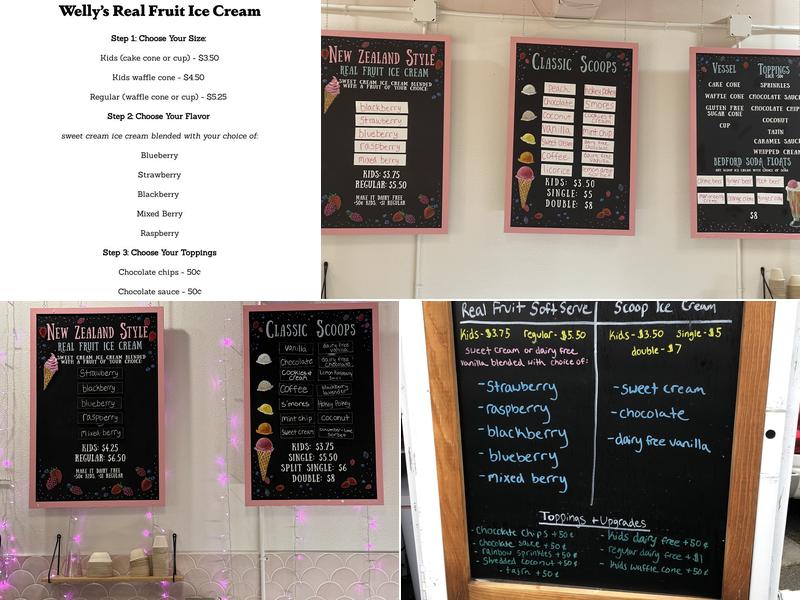 Welly's Real Fruit Ice Cream
Step 1: Choose Your Size:
Kids (cake cone or cup) - $3.50
Kids waffle cone - $4.50
Regular (waffle cone or cup) - $5.25
Step 2: Choose Your Flavor
sweet cream ice cream blended with your choice of:
Blueberry
Strawberry
Blackberry
Mixed Berry
Raspberry
Step 3: Choose Your Toppings
Chocolate chips - 50¢
Chocolate sauce - 50¢
NEW ZEALAND STYLE
REAL FRUIT ICE CREAM
SWEET CREAM ICE CREAM BLENDED
WITH A FRUIT OF YOUR CHOICE
blackberry
Strawberry
blueberry
raspberry
mixed berry
KIDS: $3.75
REGULAR: $5.50
MAKE IT DAIRY FREE
+50¢ KIDS, +$1 REGULAR
CLASSIC SCOOPS
Peach
Hokey Pokey
Chocolate
S'mores
Coconut
Cookies + cream
Vanilla
mint chip
Sweet cream
dairy free
Coffee
dairy free vanilla
licorice
KIDS: $3.50
SINGLE: $5
DOUBLE: $8
VESSEL
CAKE CONE
WAFFLE CONE
GLUTEN FREE
SUGAR CONE
CUP
TOPPINGS
SPRINKLES
CHOCOLATE SAUCE
CHOCOLATE CHIP
COCONUT
TAJIN
CARAMEL SAUC
WHIPPED CREA
BEDFORD SODA FLOATS
$8
NEW ZEALAND STYLE
REAL FRUIT ICE CREAM
SWEET CREAM ICE CREAM BLENDED
WITH A FRUIT OF YOUR CHOICE
Strawberry
blackberry
blueberry
raspberry
Mixed berry
KIDS: $4.25
REGULAR: $6.50
MAKE IT DAIRY FREE
+50¢ KIDS, +$1 REGULAR
CLASSIC SCOOPS
Vanilla
dairy free vanilla
Chocolate
dairy free chocolate
cookies + cream
Lemon Raspberry
Coffee
blackberry lavender
s'mores
Hokey Pokey
mint chip
coconut
Sweet cream
cucumber-lime sorbet
KIDS: $3.75
SINGLE: $5.50
SPLIT SINGLE: $6
DOUBLE: $8
Real Fruit Soft Serve
Kids - $3.75 regular - $5.50
sweet cream or dairy free
vanilla blended with choice of:
- Strawberry
- raspberry
- blackberry
- blueberry
- mixed berry
Scoop Ice Cream
Kids - $3.50 single - $5
double - $7
- sweet cream
- chocolate
- dairy free vanilla
Toppings + Upgrades
- Chocolate chips +50¢
- chocolate sauce +50¢
- rainbow sprinkles +50¢
- Shredded coconut +50¢
- tajin +50¢
- Kids dairy free +50¢
- regular dairy free +$1
- kids waffle cone +50¢